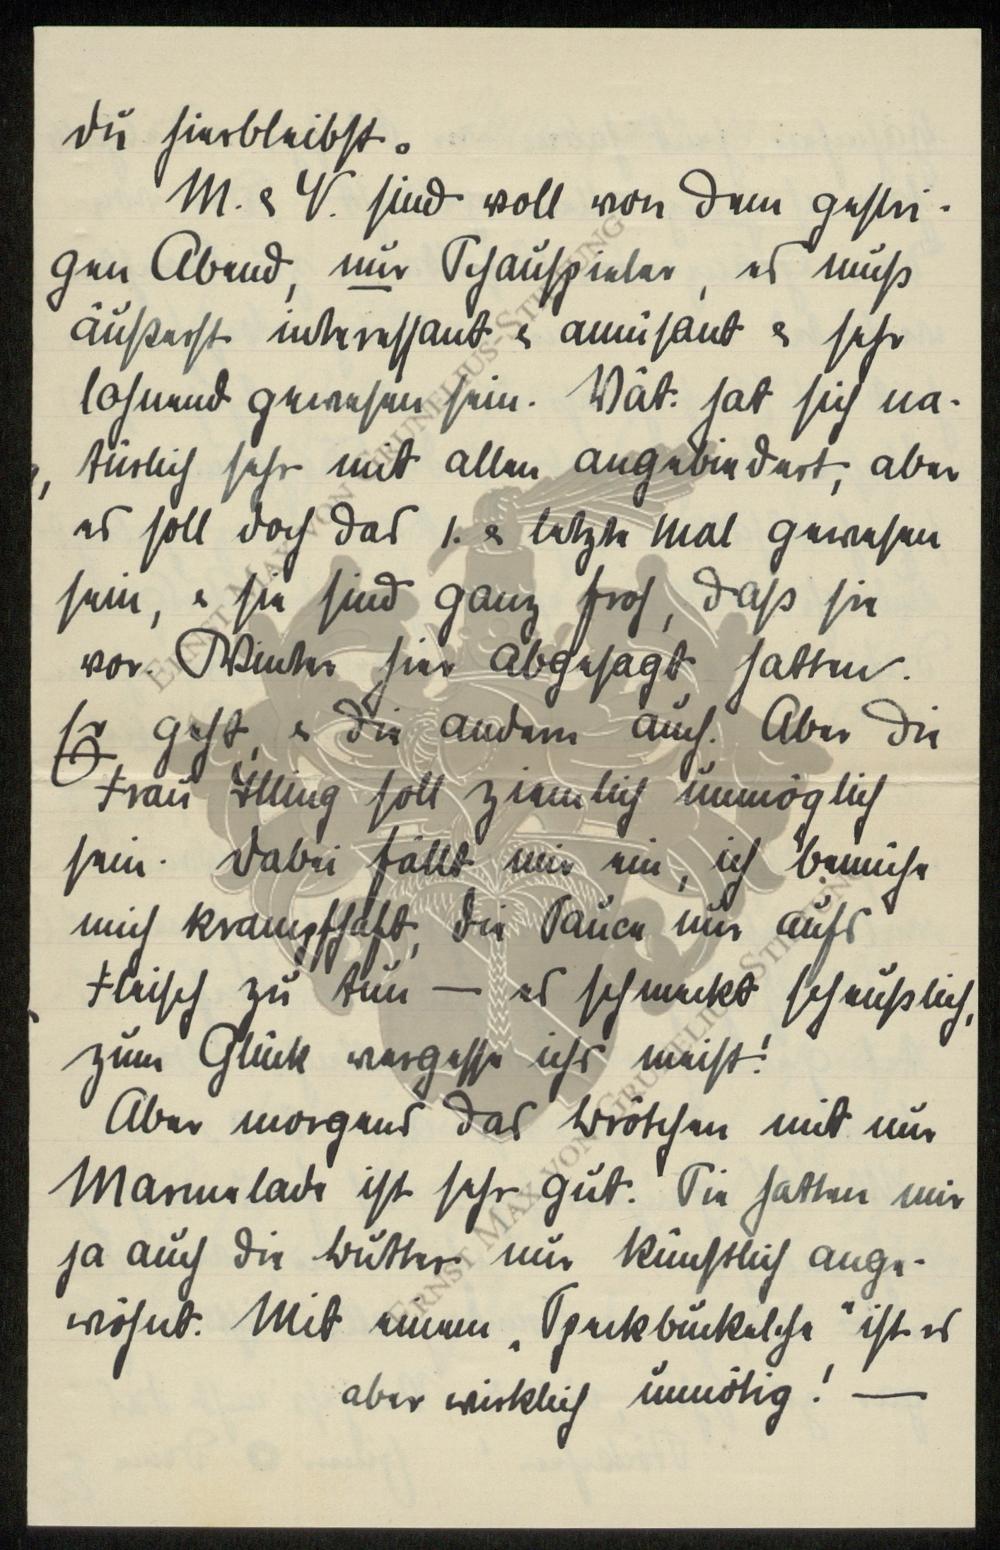 du hierbleibst.
M. & V. sind voll von dem gestri-
gen Abend, nur Schauspieler, es muß
äußerst interessant & amüsant & sehr
lohnend gewesen sein. Vat. hat sich na-
türlich sehr mit allen angebiedert, aber
es soll doch das 1. & letzte Mal gewesen
sein, & sie sind ganz froh, daß sie
vor. Winter hier abgesagt hatten.
Er geht, & die andern auch. Aber die
Frau Illing soll ziemlich unmöglich
sein. Dabei fällt mir ein, ich bemühe
mich krampfhaft, die Sauce nur aufs
Fleisch zu tun — es schmeckt scheußlich,
zum Glück vergesse ichs meist!
Aber morgens das Brötchen mit nur
Marmelade ist sehr gut. Sie hatten mir
ja auch die Butter nur künstlich ange-
wöhnt. Mit einem „Speckbuckelche" ist es
aber wirklich unnötig! —
ERNST MAX VON GRUNELIUS-STIFTUNG
ERNST MAX VON GRUNELIUS-STIFTUNG